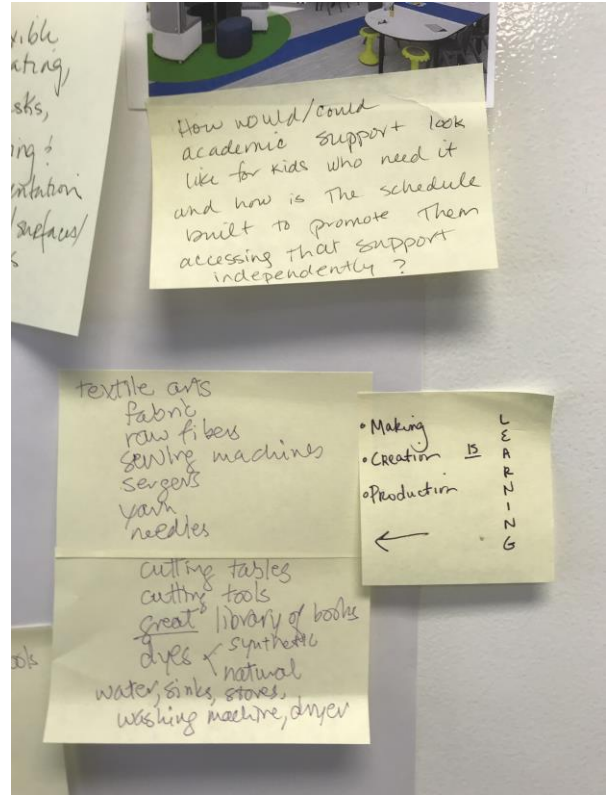 ating,
How would/could
academic support look
like for kids who need it
and how is The schedule
built to promote Them
accessing That support
independently ?
textile arts
fabric
raw fibers
sewing machines
sergers
yarn
needles
cutting tables
cutting tools
great library of books
dyes synthetic
natural
water, sinks, stoves,
washing machine, dryer
• Making
• Creation IS
• Production
LEARNING